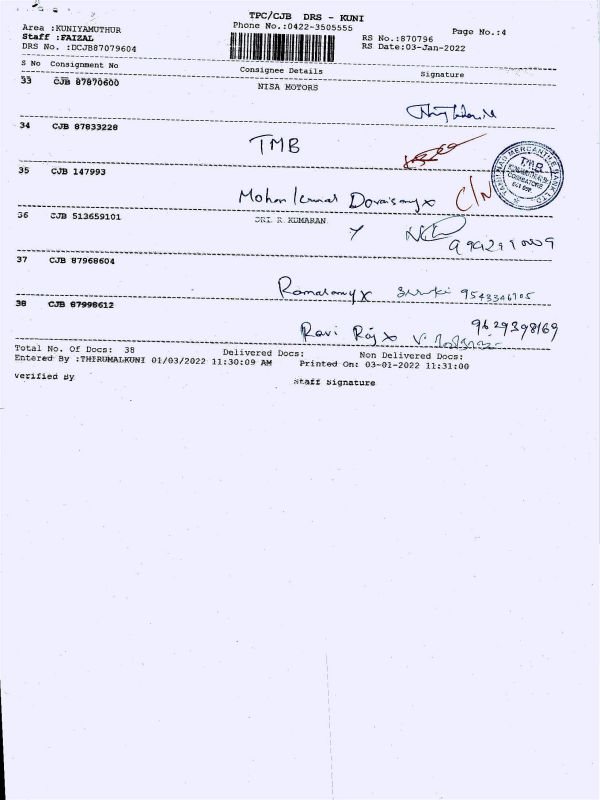 TPC/CJB DRS - KUNI
Area :KUNIYAMUTHUR
Phone No.:0422-3505555
Page No.:4
Staff :FAIZAL
RS No.:870796
DRS No. :DCJB87079604
RS Date:03-Jan-2022
S No Consignment No Consignee Details Signature
33 CJB 87870600 NISA MOTORS
34 CJB 87833228
TMB
TAMILNAD MERCANTILE BANK LTD.
T.M.B
COIMBATORE
35 CJB 147993
Mohan Kumar Doraisamy x C/N
36 CJB 513659101 SRI. R. KUMARAN
37 CJB 87968604
Ramasamy x
38 CJB 87998612
Ravi Raj x
9629398169
Total No. Of Docs: 38 Delivered Docs: Non Delivered Docs:
Entered By :THIRUMALKUNI 01/03/2022 11:30:09 AM Printed On: 03-01-2022 11:31:00
Verified By Staff Signature